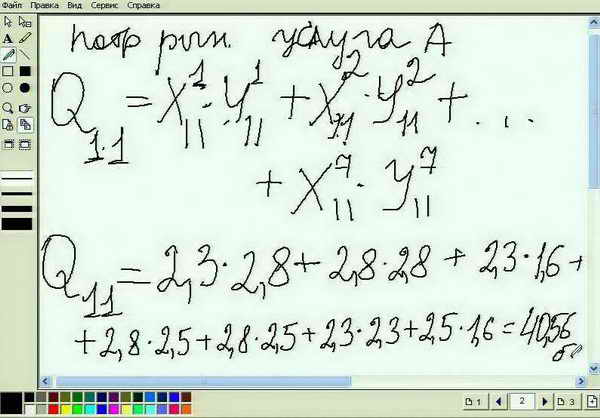 Файл Правка Вид Сервис Справка
потр рын. услуга А
Q₁.₁ = X₁₁¹ · Y₁₁¹ + X₁₁² · Y₁₁² + . . .
+ X₁₁⁷ · Y₁₁⁷
Q₁₁ = 2,3 · 2,8 + 2,8 · 2,8 + 2,3 · 1,6 +
+ 2,8 · 2,5 + 2,8 · 2,5 + 2,3 · 2,3 + 2,5 · 1,6 = 40,56
1 2 3